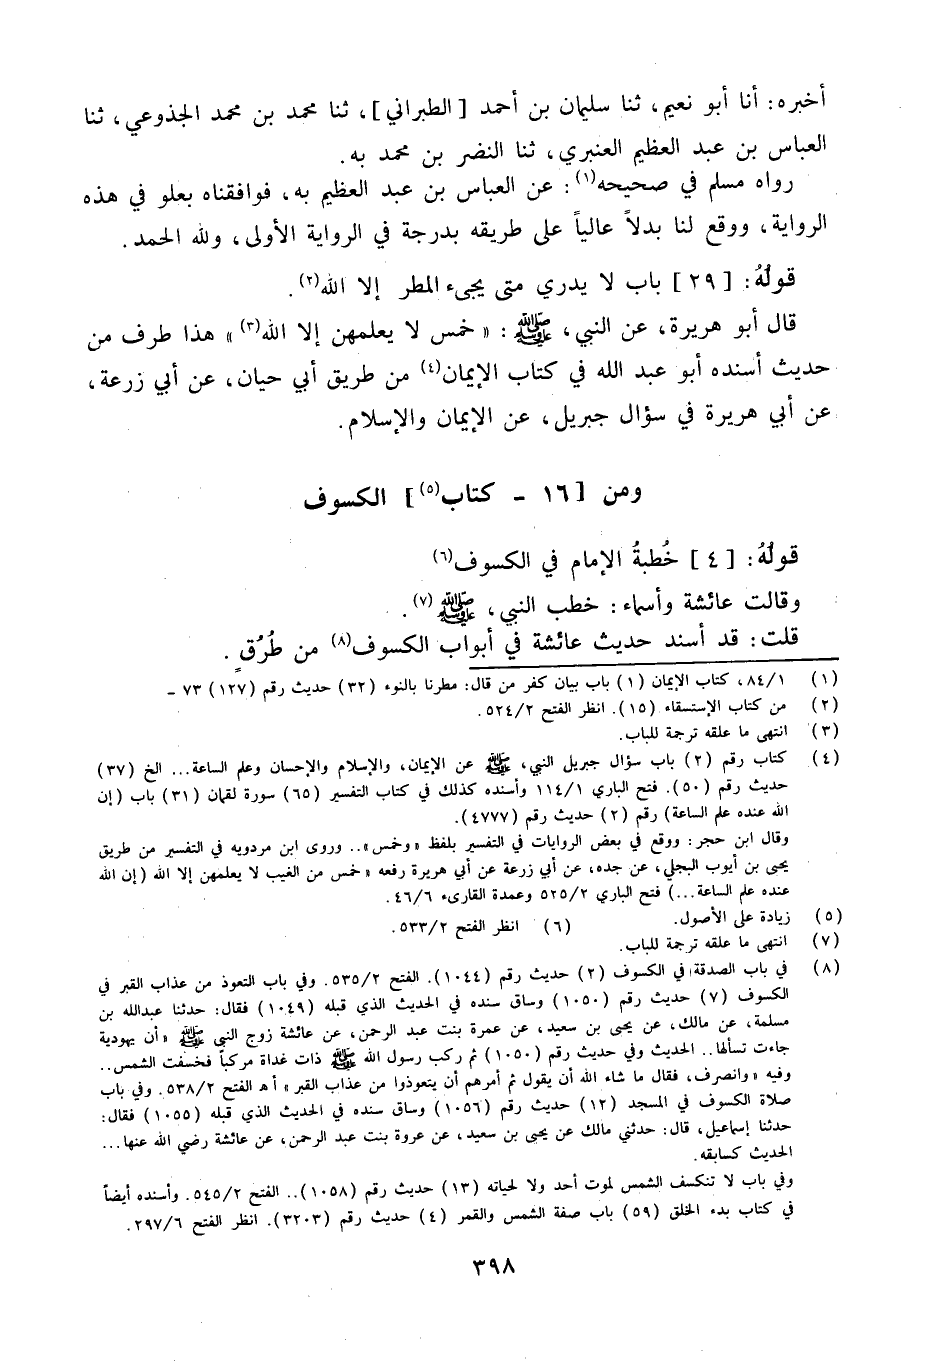 أخبره: أنا أبو نعيم، ثنا سليمان بن أحمد [الطبراني]، ثنا محمد بن محمد الجذوعي، ثنا
العباس بن عبد العظيم العنبري، ثنا النضر بن محمد به.
رواه مسلم في صحيحه(١): عن العباس بن عبد العظيم به، فوافقناه بعلو في هذه
الرواية، ووقع لنا بدلاً عالياً على طريقه بدرجة في الرواية الأولى، ولله الحمد.
قولُهُ: [٢٩] باب لا يدري متى يجيء المطر إلا الله(٢).
قال أبو هريرة، عن النبي، ﷺ: «خمس لا يعلمهن إلا الله(٣)» هذا طرف من
حديث أسنده أبو عبد الله في كتاب الإيمان(٤) من طريق أبي حيان، عن أبي زرعة،
عن أبي هريرة في سؤال جبريل، عن الإيمان والإسلام.
ومن [١٦ - كتاب(٥)] الكسوف
قولُهُ: [٤] خُطبةُ الإمام في الكسوف(٦)
وقالت عائشة وأسماء: خطب النبي، ﷺ(٧).
قلت: قد أسند حديث عائشة في أبواب الكسوف(٨) من طُرُقٍ.
(١) ٨٤/١، كتاب الإيمان (١) باب بيان كفر من قال: مطرنا بالنوء (٣٢) حديث رقم (١٢٧) ٧٣ -
(٢) من كتاب الإستسقاء (١٥). انظر الفتح ٥٢٤/٢.
(٣) انتهى ما علقه ترجمة للباب.
(٤) كتاب رقم (٢) باب سؤال جبريل النبي، ﷺ عن الإيمان، والإسلام والإحسان وعلم الساعة... الخ (٣٧)
حديث رقم (٥٠). فتح الباري ١١٤/١ وأسنده كذلك في كتاب التفسير (٦٥) سورة لقمان (٣١) باب (إن
الله عنده علم الساعة) رقم (٢) حديث رقم (٤٧٧٧).
وقال ابن حجر: ووقع في بعض الروايات في التفسير بلفظ «وخمس».. وروى ابن مردويه في التفسير من طريق
يحيى بن أيوب البجلي، عن جده، عن أبي زرعة عن أبي هريرة رفعه «خمس من الغيب لا يعلمهن إلا الله (إن الله
عنده علم الساعة...) فتح الباري ٥٢٥/٢ وعمدة القارىء ٤٦/٦.
(٥) زيادة على الأصول. (٦) انظر الفتح ٥٣٣/٢.
(٧) انتهى ما علقه ترجمة للباب.
(٨) في باب الصدقة في الكسوف (٢) حديث رقم (١٠٤٤). الفتح ٥٣٥/٢. وفي باب التعوذ من عذاب القبر في
الكسوف (٧) حديث رقم (١٠٥٠) وساق سنده في الحديث الذي قبله (١٠٤٩) فقال: حدثنا عبدالله بن
مسلمة، عن مالك، عن يحيى بن سعيد، عن عمرة بنت عبد الرحمن، عن عائشة زوج النبي ﷺ «أن يهودية
جاءت تسألها.. الحديث وفي حديث رقم (١٠٥٠) ثم ركب رسول الله ﷺ ذات غداة مركباً فخسفت الشمس..
وفيه «وانصرف، فقال ما شاء الله أن يقول ثم أمرهم أن يتعوذوا من عذاب القبر» أهـ الفتح ٥٣٨/٢. وفي باب
صلاة الكسوف في المسجد (١٢) حديث رقم (١٠٥٦) وساق سنده في الحديث الذي قبله (١٠٥٥) فقال:
حدثنا إسماعيل، قال: حدثني مالك عن يحيى بن سعيد، عن عروة بنت عبد الرحمن، عن عائشة رضي الله عنها...
الحديث كسابقه.
وفي باب لا تنكسف الشمس لموت أحد ولا لحياته (١٣) حديث رقم (١٠٥٨).. الفتح ٥٤٥/٢. وأسنده أيضاً
في كتاب بدء الخلق (٥٩) باب صفة الشمس والقمر (٤) حديث رقم (٣٢٠٣). انظر الفتح ٢٩٧/٦.
٣٩٨